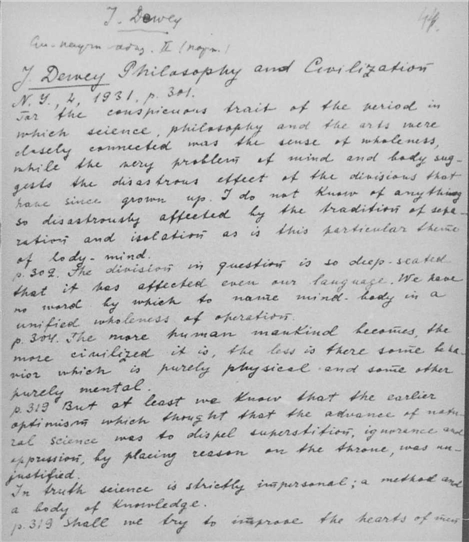 J. Dewey 44.
II
J. Dewey Philosophy and Civilization
N. Y., L, 1931, p. 301.
For the conspicuous trait of the period in
which science, philosophy and the arts were
closely connected was the sense of wholeness,
while the very problem of mind and body sug-
gests the disastrous effect of the divisions that
have since grown up. I do not know of anything
so disastrously affected by the tradition of sepa-
ration and isolation as is this particular theme
of body-mind.
p. 302. The division in question is so deep-seated
that it has affected even our language. We have
no word by which to name mind-body in a
unified wholeness of operation.
p. 304. The more human mankind becomes, the
more civilized it is, the less is there some beha-
vior which is purely physical and some other
purely mental.
p. 319 But at least we know that the earlier
optimism which thought that the advance of natu-
ral science was to dispel superstition, ignorance and
oppression, by placing reason on the throne, was un-
justified.
In truth science is strictly impersonal; a method and
a body of knowledge.
p. 319 Shall we try to improve the hearts of men